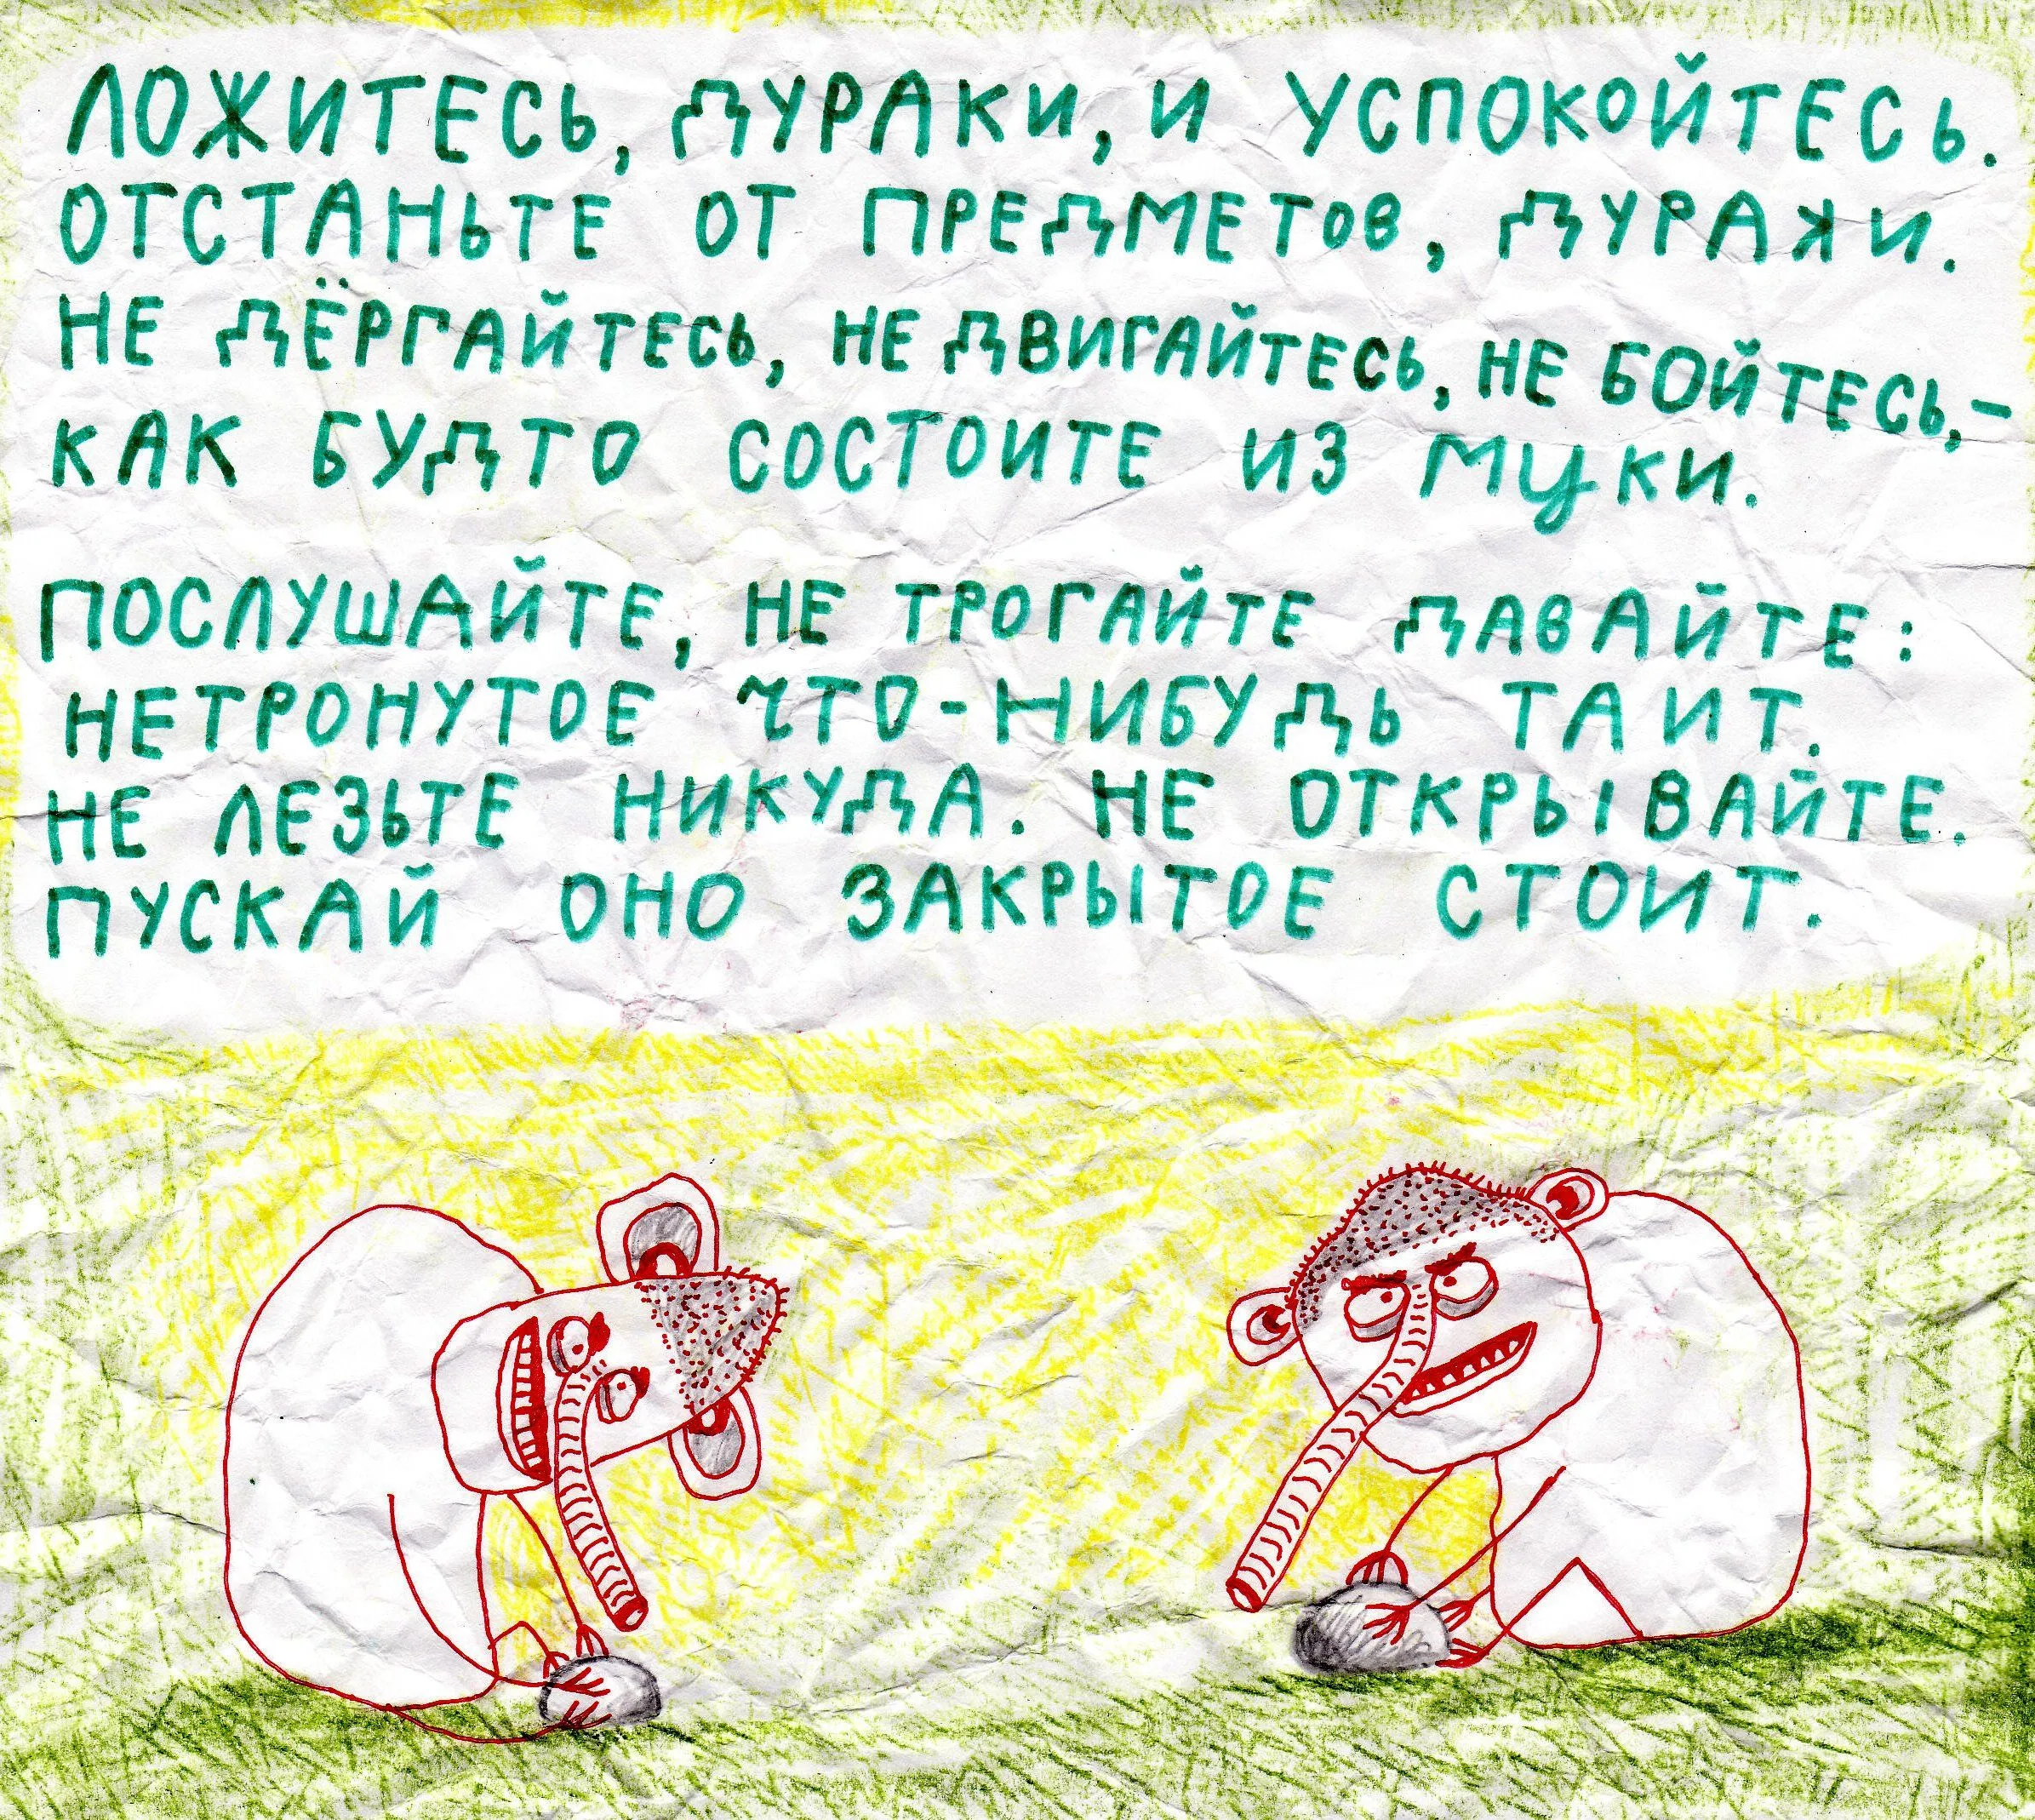 ЛОЖИТЕСЬ, ДУРАКИ, И УСПОКОЙТЕСЬ.
ОТСТАНЬТЕ ОТ ПРЕДМЕТОВ, ДУРАКИ.
НЕ ДЁРГАЙТЕСЬ, НЕ ДВИГАЙТЕСЬ, НЕ БОЙТЕСЬ,-
КАК БУДТО СОСТОИТЕ ИЗ МУКИ.
ПОСЛУШАЙТЕ, НЕ ТРОГАЙТЕ ДАВАЙТЕ:
НЕТРОНУТОЕ ЧТО-НИБУДЬ ТАИТ.
НЕ ЛЕЗЬТЕ НИКУДА. НЕ ОТКРЫВАЙТЕ.
ПУСКАЙ ОНО ЗАКРЫТОЕ СТОИТ.